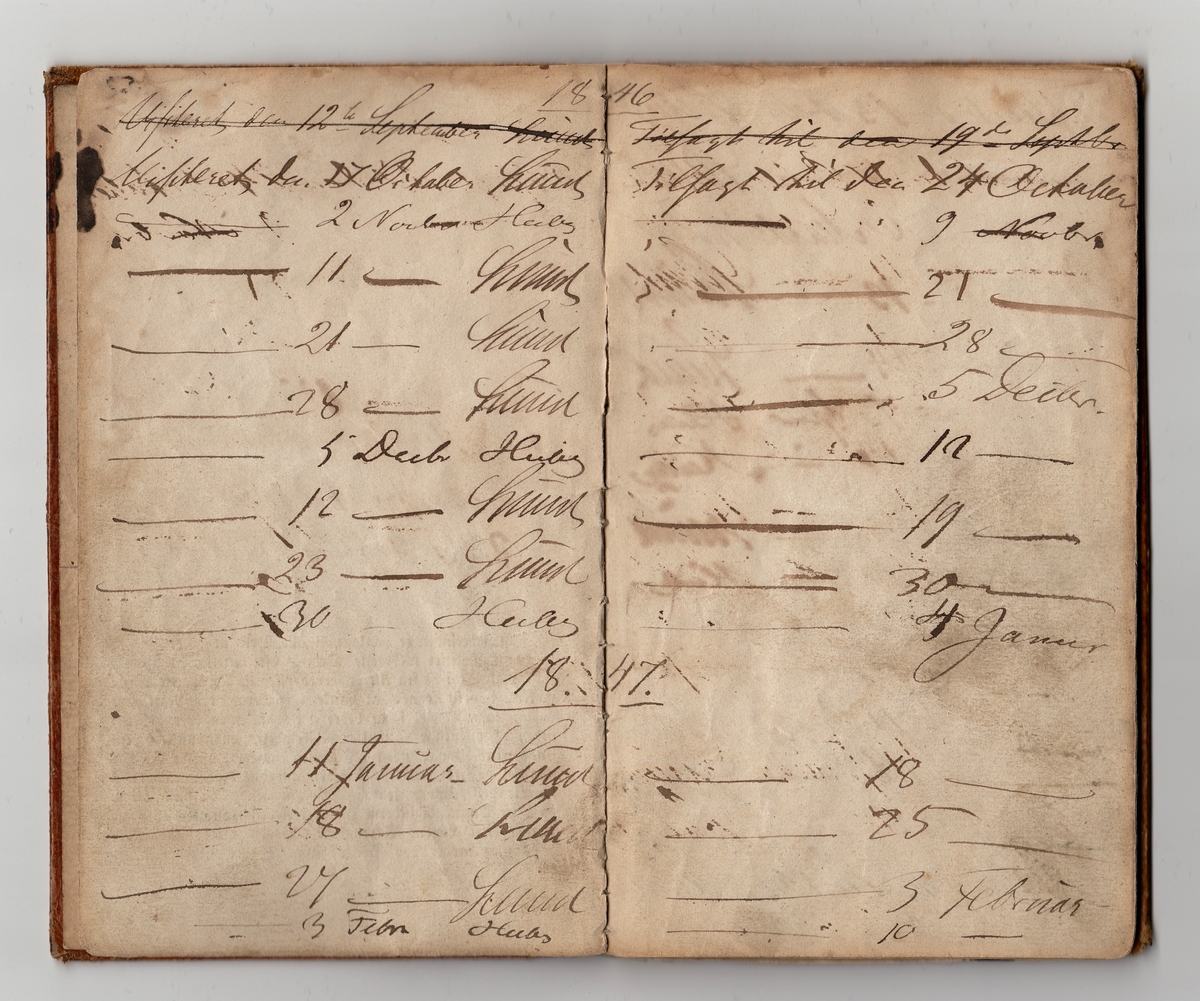 18 46
Visiteret den 12te September Lund Tilsagt til den 19de Septbr
Visiteret den 17 October Lund Tilsagt til den 24 October
2 Novbr Heiby 9 Novbr
11 Lund 21
21 Lund 28
28 Lund 5 Decbr.
5 Decbr Heiby 12
12 Lund 19
23 Lund 30
30 Heiby 4 Januar
18. 47.
11 Januar Lund 18
18 Lund 25
27 Lund 3 Februar
3 Febr Heiby 10